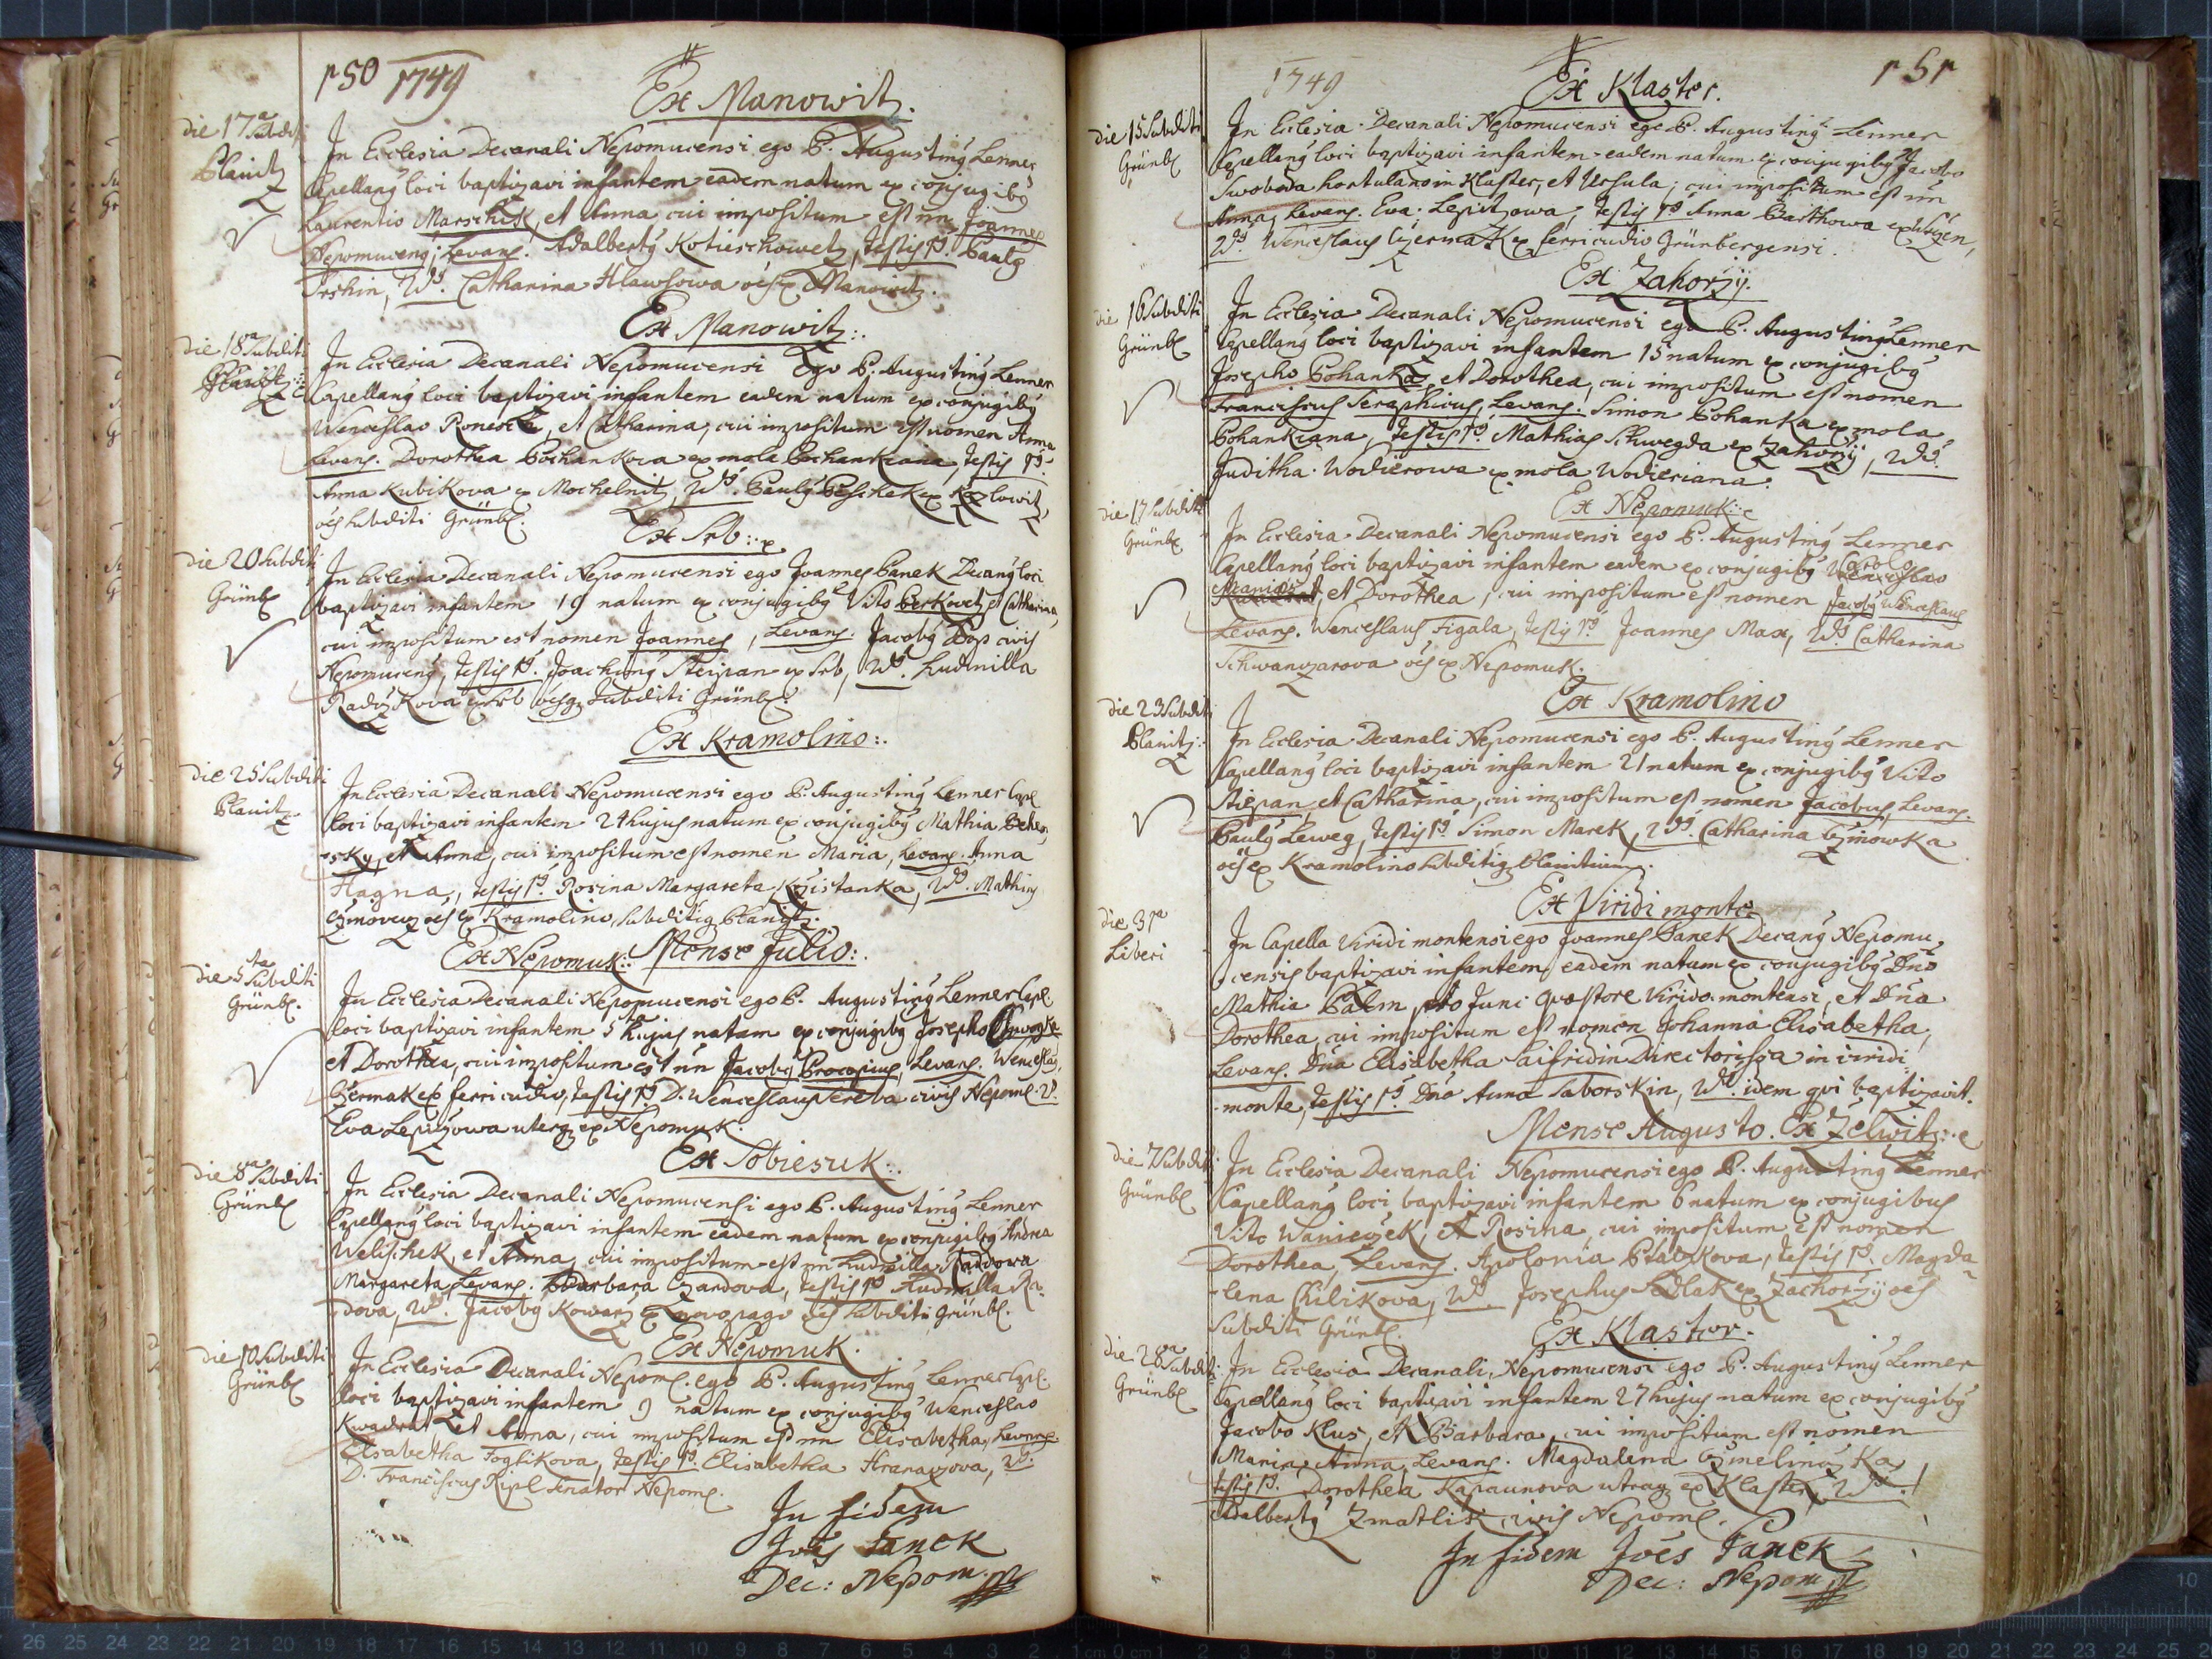 150 1749
Ex Manowitz.
die 17a Subditi
Planitz
In Ecclesia Decanali Nepomucensi ego P. Augustinq Lenner
Capellanq loci baptizavi infantem eadem natum ex conjugibq
Laurentio Marschik, et Anna cui impositum est nn Joannes
Nepomucenq, Levans. Adalbertq Kotieschowetz, testis 1q. Paulq
Catharina Hlawsowa oes ex Manowitz.
Ex Manowitz:.
die 18a Subditi
In Ecclesia Decanali Nepomucensi Ego P. Augustinq Lenner
Capellanq loci baptizavi infantem eadem natum ex conjugibq
Wenceslao et Catharina, cui impositum est nomen Anna
Levans. Dorothea Bohankova ex mola Bohankiana, testis 1q.
Anna Kubikova ex Mochelnitz, 2dq. Paulq ex Kozlowitz,
oes subditi Grünb.
Ex Srb:.
die 20 Subditi
Grünb
In Ecclesia Decanali Nepomucensi ego Joannes Panek Decanq loci
baptizavi infantem 19 natum ex conjugibq Vito Berkovetz et Catharina,
cui impositum est nomen Joannes, Levans. Jacobq civis
Nepomucenq, testis 1q. Joachimq Steipan ex Srb, 2dq. Ludmilla
ex Srb oesq subditi Grünb.
Ex Kramolino:.
die 25 Subditi
Planitz
In Ecclesia Decanali Nepomucensi ego P. Augustinq Lenner Capl
loci baptizavi infantem 24 hujus natum ex conjugibq Mathia
sky, et Anna, cui impositum est nomen Maria, Levans. Anna
Hagna, testis 1q. Rosina Margareta 2dq. Mathias
oes ex Kramolino, subditiq Planitz.
Ex Nepomuk:. Mense Julio:.
die 5ta Subditi
Grünb.
In Ecclesia Decanali Nepomucensi ego P. Augustinq Lenner Capl.
loci baptizavi infantem 5 hujus natum ex conjugibq Josepho
et Dorothea, cui impositum est nn Jacobq Procopius, Levans. Wenceslaq
Czermak ex ferricudio, testis 1q. D. Wenceslaus civis Nepom. 2.
Eva Lepiczowa uterq ex Nepomuk.
Ex Sobiesuk:.
die 8a Subditi
Grünb
In Ecclesia Decanali Nepomucensi ego P. Augustinq Lenner
Capellanq loci baptizavi infantem eadem natum ex conjugibq Andrea
Welischek, et Anna, cui impositum est nn Ludmilla
Margareta, Levans. Barbara Czandova, testis 1q Ludmilla Ra
dova, 2dq. Jacobq Kowarz ex novopago oes subditi Grünb.
Ex Nepomuk.
die 10 Subditi
Grünb
In Ecclesia Decanali Nepom. ego P. Augustinq Lenner Capl.
loci baptizavi infantem 9 natum ex conjugibq Wenceslao
Kwadrat et Anna, cui impositum est nn Elisabetha, Levans.
Elisabetha Foglikova, testis 1q. Elisabetha 2d.
D. Franciscus Ripl Senator Nepom.
In fidem
Joes Panek
Dec: Nepom.
1749 151
Ex Klaster.
die 15 Subditi
Grünb
In Ecclesia Decanali Nepomucensi ego P. Augustinq Lenner
Capellanq loci baptizavi infantem eadem natum ex conjugibq Jacobo
Swoboda hortulano in Klaster, et Ursula, cui impositum est nn
Anna, Levans. Eva Lepiczowa, testis 1q Anna Barthowa
2dq Wenceslaus Czermak ex ferricudio Grünbergensi.
Ex Zahorzy.
die 16 Subditi
Grünb
In Ecclesia Decanali Nepomucensi ego P. Augustinq Lenner
Capellanq loci baptizavi infantem 15 natum ex conjugibq
Josepho Bohanka, et Dorothea, cui impositum est nomen
Franciscus Seraphicus, Levans. Simon Bohanka ex mola
Bohankiana, testis 1q. Mathias Schwegda ex Zahorzy, 2dq.
Juditha Wodierowa ex mola Wodieriana.
Ex Nepomuk:.
die 17 Subditi
Grünb
In Ecclesia Decanali Nepomucensi ego P. Augustinq Lenner
Capellanq loci baptizavi infantem eadem ex conjugibq Carolo
et Dorothea, cui impositum est nomen Jacobq Wenceslaus
Levans. Wenceslaus Figala, testis 1q Joannes Max, 2dq Catharina
Schwanzarova oes ex Nepomuk.
Ex Kramolino
die 23 Subditi
Planitz:.
In Ecclesia Decanali Nepomucensi ego P. Augustinq Lenner
Capellanq loci baptizavi infantem 21 natum ex conjugibq Vito
Stiepan, et Catharina, cui impositum est nomen Jacobus, Levans.
Paulq Leweg, testis 1q Simon Marek, 2dq. Catharina
oes ex Kramolino subditiq Planitium.
Ex Viridi monte.
die 31a
Liberi
In Capella Viridi montensi ego Joannes Panek Decanq Nepomu
censis baptizavi infantem eadem natam ex conjugibq Dno
Mathia Palm, pro tunc Quaestore Virido-montensi, et Dna
Dorothea, cui impositum est nomen Johanna Elisabetha,
Levans. Dna Elisabetha Saifridin Directorissa in viridi
monte, testis 1q. Dna Anna Saborskin, 2dq. idem qvi baptizavit.
Mense Augusto. Ex Zelwitz:.
die 7 Subditi
Grünb
In Ecclesia Decanali Nepomucensi ego P. Augustinq Lenner
Capellanq loci baptizavi infantem 6 natum ex conjugibus
Vito Waniczek, et Rosina, cui impositum est nomen
Dorothea, Levans. Apolonia Ptaczkova, testis 1q. Magda
lena Chilikova, 2dq. Josephus Sedlak ex Zachorzy oes
Subditi Grünb.
Ex Klaster.
die 28a Subditi
Grünb
In Ecclesia Decanali Nepomucensi ego P. Augustinq Lenner
Capellanq loci baptizavi infantem 27 hujus natum ex conjugibq
Jacobo Klus, et Barbara, cui impositum est nomen
Maria Anna, Levans. Magdalena
testis 1q. Dorothea Kapaunova utraq ex Klaster, 2dq.
Adalbertq Zmatlik civis Nepom.
In fidem Joes Panek
Dec: Nepom